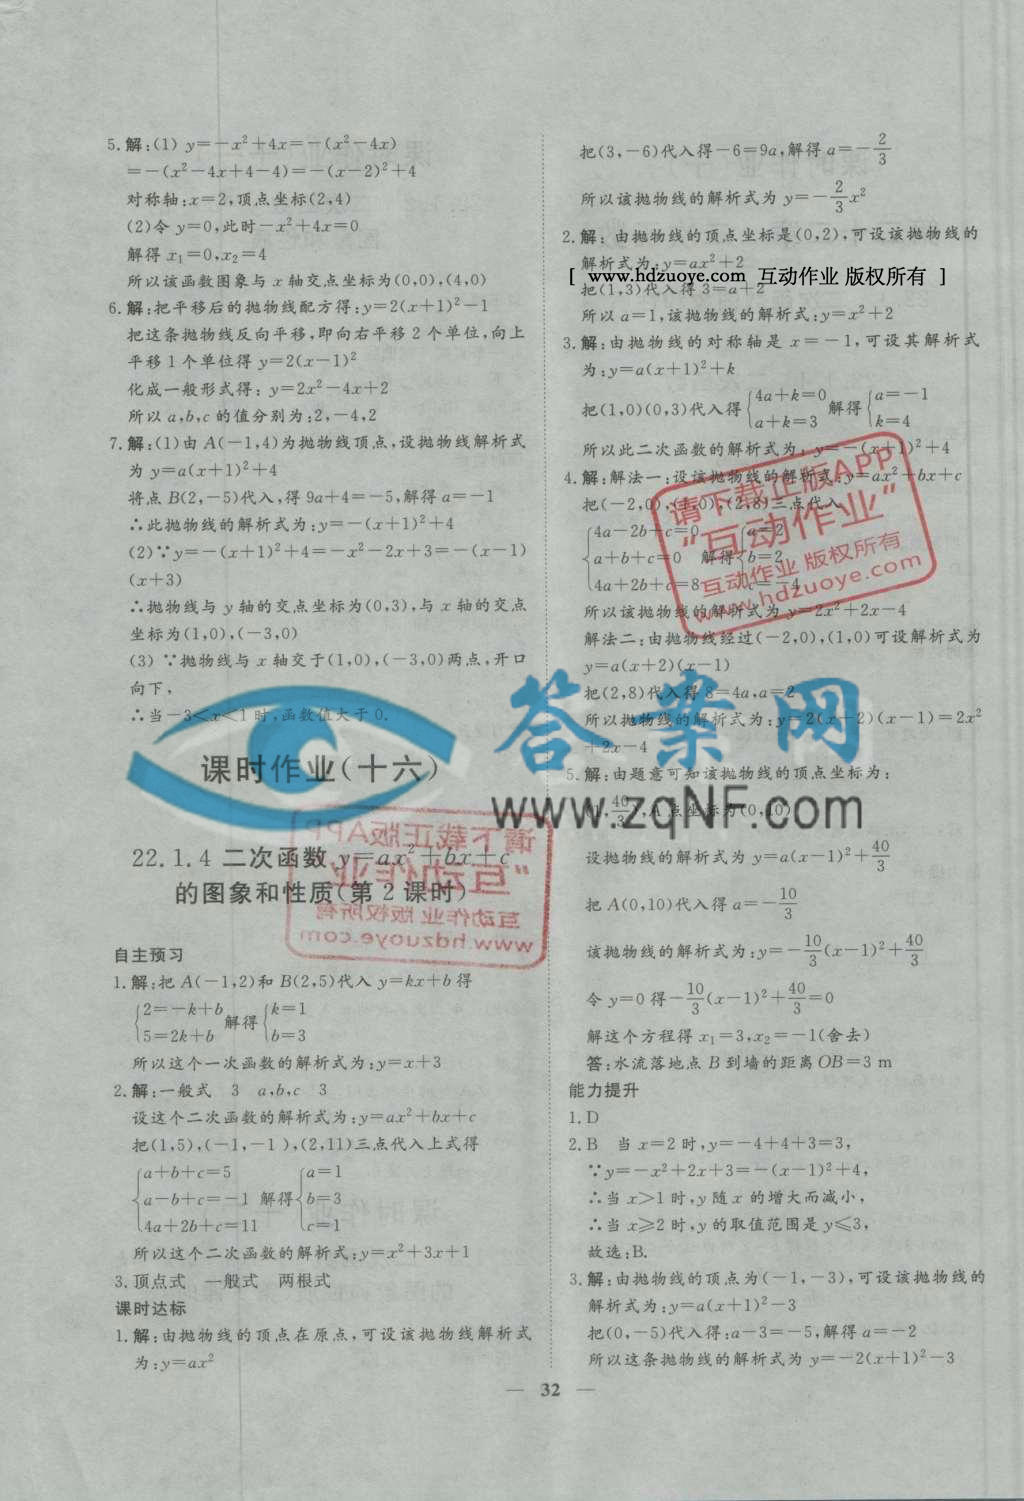 5.解:(1) y=-x²+4x=-(x²-4x)
=-(x²-4x+4-4)=-(x-2)²+4
对称轴:x=2,顶点坐标(2,4)
(2)令 y=0,此时-x²+4x=0
解得 x₁=0,x₂=4
所以该函数图象与 x 轴交点坐标为(0,0),(4,0)
6.解:把平移后的抛物线配方得:y=2(x+1)²-1
把这条抛物线反向平移,即向右平移 2 个单位,向上
平移 1 个单位得 y=2(x-1)²
化成一般形式得: y=2x²-4x+2
所以 a,b,c 的值分别为:2,-4,2
7.解:(1)由 A(-1,4)为抛物线顶点,设抛物线解析式
为 y=a(x+1)²+4
将点 B(2,-5)代入,得 9a+4=-5,解得 a=-1
∴此抛物线的解析式为:y=-(x+1)²+4
(2)∵y=-(x+1)²+4=-x²-2x+3=-(x-1)
(x+3)
∴抛物线与 y 轴的交点坐标为(0,3),与 x 轴的交点
坐标为(1,0),(-3,0)
(3) ∵抛物线与 x 轴交于(1,0),(-3,0)两点,开口
向下,
∴当-3<x<1 时,函数值大于 0.
课时作业(十六)
22.1.4 二次函数 y=ax²+bx+c
的图象和性质(第 2 课时)
自主预习
1.解:把 A(-1,2)和 B(2,5)代入 y=kx+b 得
{2=-k+b 5=2k+b 解得{k=1 b=3
所以这个一次函数的解析式为:y=x+3
2.解:一般式 3 a,b,c 3
设这个二次函数的解析式为:y=ax²+bx+c
把(1,5),(-1,-1),(2,11)三点代入上式得
{a+b+c=5 a-b+c=-1 4a+2b+c=11 解得{a=1 b=3 c=1
所以这个二次函数的解析式:y=x²+3x+1
3.顶点式 一般式 两根式
课时达标
1.解:由抛物线的顶点在原点,可设该抛物线解析式
为:y=ax²
把(3,-6)代入得-6=9a,解得 a=-2/3
所以该抛物线的解析式为 y=-2/3x²
2.解: 由抛物线的顶点坐标是(0,2),可设该抛物线的
解析式为:y=ax²+2
[ www.hdzuoye.com 互动作业 版权所有 ]
把(1,3)代入得 3=a+2
所以 a=1,该抛物线的解析式:y=x²+2
3.解:由抛物线的对称轴是 x=-1,可设其解析式
为:y=a(x+1)²+k
把(1,0)(0,3)代入得{4a+k=0 a+k=3 解得{a=-1 k=4
所以此二次函数的解析式为: y=-(x+1)²+4
4.解:解法一:设该抛物线的解析式:y=ax²+bx+c
把(-2,0),(1,0),(2,8)三点代入
{4a-2b+c=0 a+b+c=0 4a+2b+c=8 解得{a=2 b=2 c=-4
所以该抛物线的解析式为 y=2x²+2x-4
解法二:由抛物线经过(-2,0),(1,0)可设解析式为
y=a(x+2)(x-1)
把(2,8)代入得 8=4a,a=2
所以抛物线的解析式为:y=2(x+2)(x-1)=2x²
+2x-4
5.解:由题意可知该抛物线的顶点坐标为:
(1,40/3),A 点坐标为(0,10)
设抛物线的解析式为:y=a(x-1)²+40/3
把 A(0,10)代入得 a=-10/3
该抛物线的解析式为:y=-10/3(x-1)²+40/3
令 y=0 得-10/3(x-1)²+40/3=0
解这个方程得 x₁=3,x₂=-1(舍去)
答:水流落地点 B 到墙的距离 OB=3 m
能力提升
1.D
2.B 当 x=2 时,y=-4+4+3=3,
∵y=-x²+2x+3=-(x-1)²+4,
∴当 x>1 时,y 随 x 的增大而减小,
∴当 x≥2 时,y 的取值范围是 y≤3,
故选:B.
3.解:由抛物线的顶点为(-1,-3),可设该抛物线的
解析式为:y=a(x+1)²-3
把(0,-5)代入得:a-3=-5,解得 a=-2
所以这条抛物线的解析式为 y=-2(x+1)²-3
— 32 —
请下载正版APP
“互动作业”
互动作业 版权所有
www.hdzuoye.com
答案网
www.zqNF.com
请下载正版APP
“互动作业”
互动作业 版权所有
www.hdzuoye.com